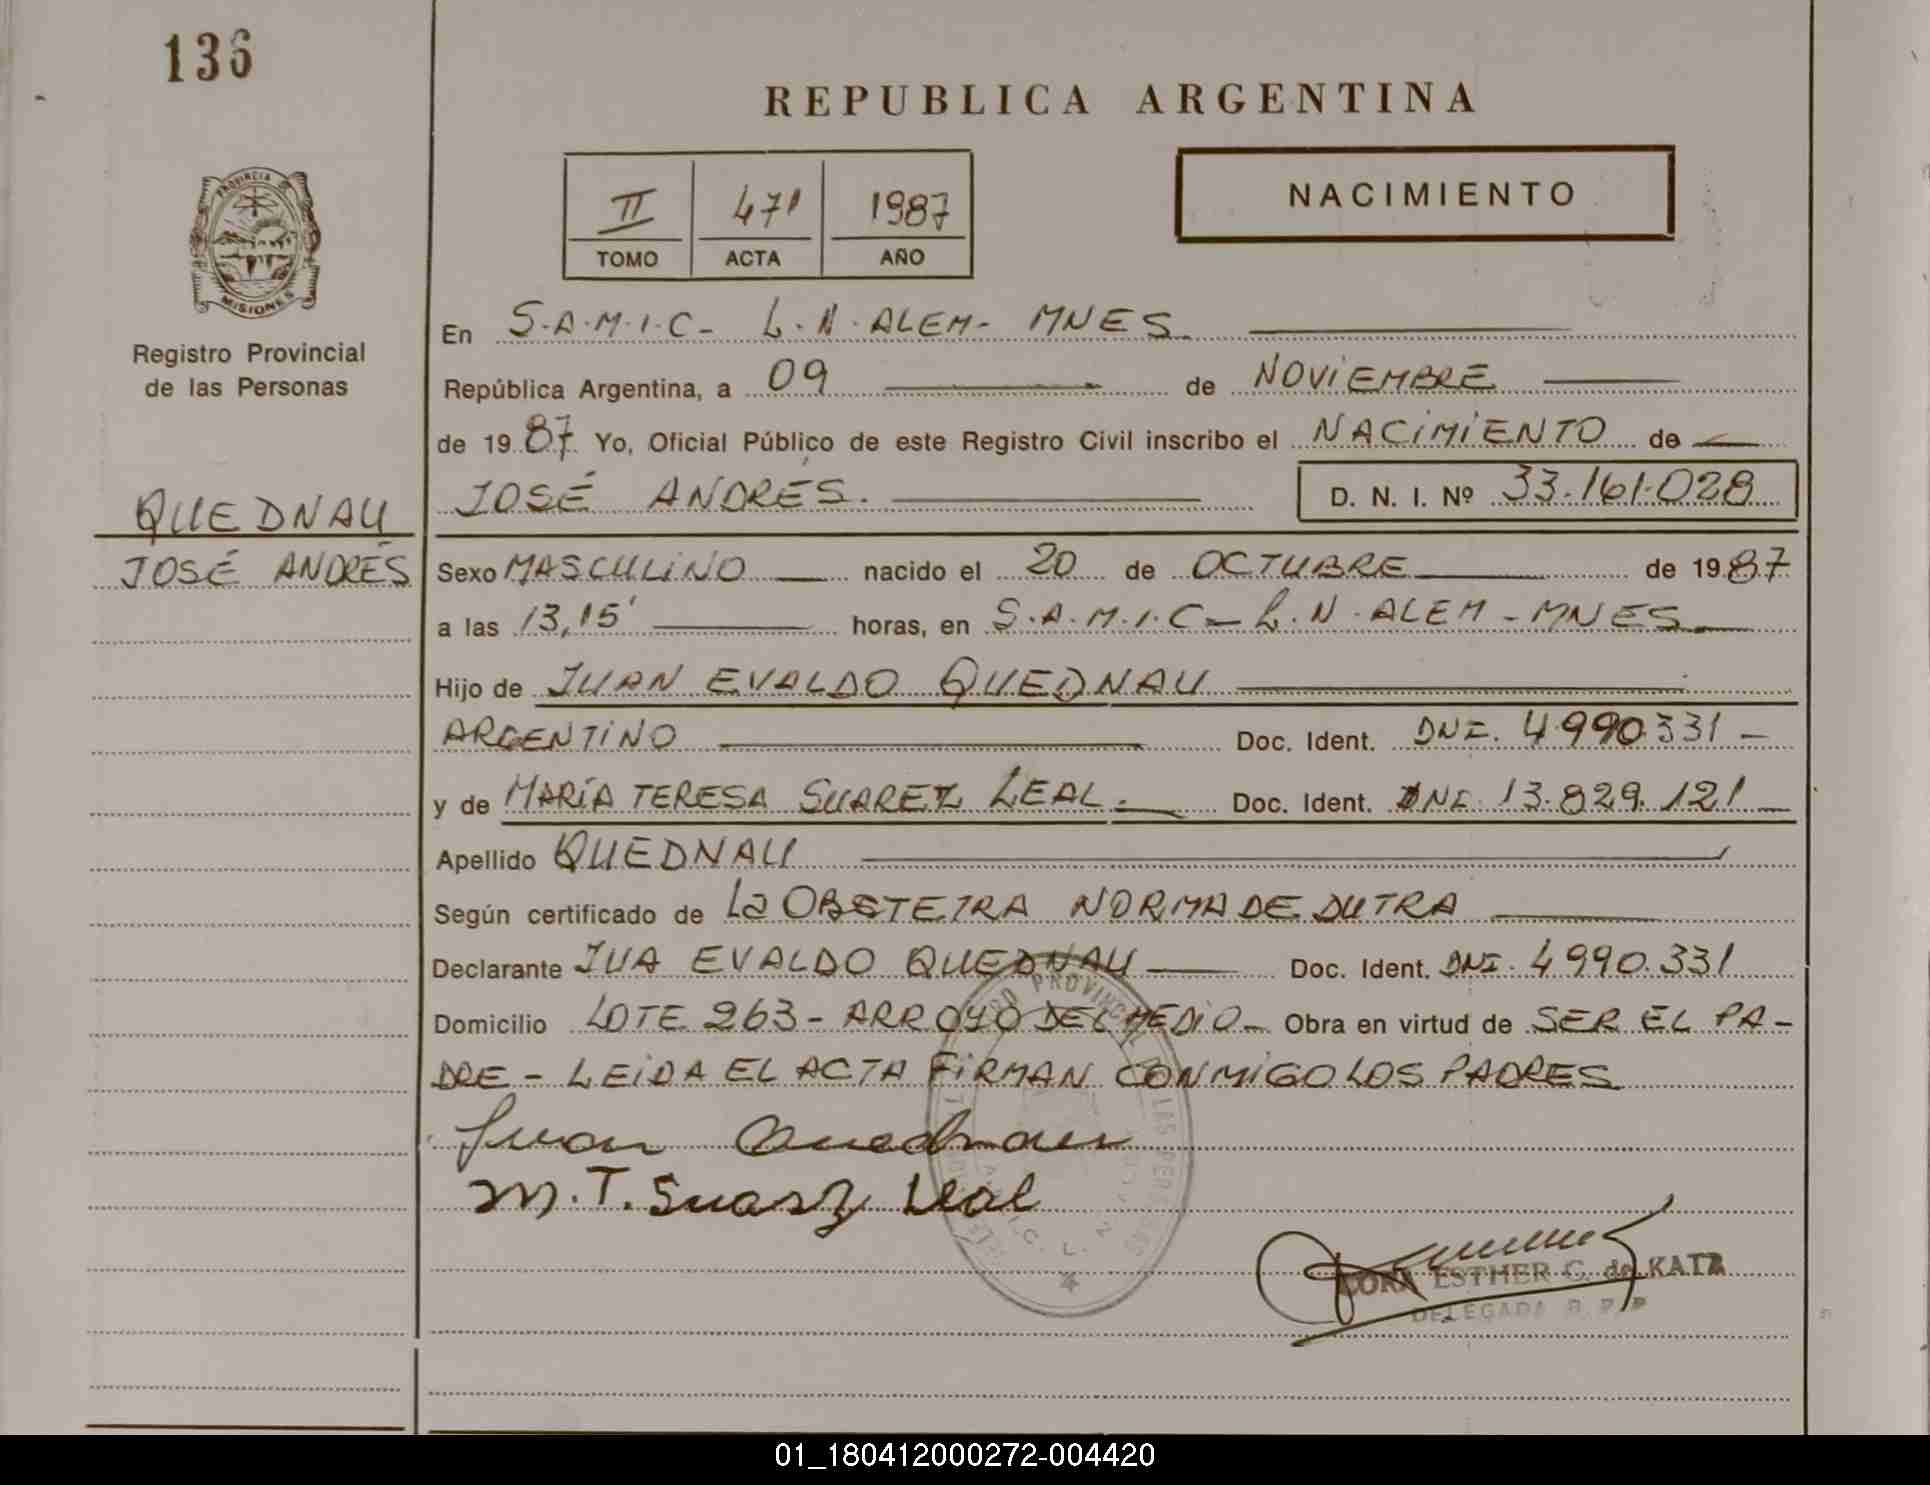 136
REPUBLICA ARGENTINA
II 471 1987
TOMO ACTA AÑO
NACIMIENTO
PROVINCIA DE
MISIONES
Registro Provincial
de las Personas
QUEDNAU
JOSÉ ANDRÉS
En S.A.M.I.C- L.N.ALEM- MNES
República Argentina, a 09 de NOVIEMBRE
de 1987. Yo, Oficial Público de este Registro Civil inscribo el NACIMIENTO de
JOSÉ ANDRÉS. D. N. I. Nº 33.161.028
Sexo MASCULINO nacido el 20 de OCTUBRE de 1987
a las 13,15' horas, en S.A.M.I.C- L.N.ALEM - MNES
Hijo de JUAN EVALDO QUEDNAU
ARGENTINO Doc. Ident. DNI. 4.990.331 -
y de MARÍA TERESA SUAREZ LEAL. Doc. Ident. DNI. 13.829.121
Apellido QUEDNAU
Según certificado de La OBSTETRA NORMA DE DUTRA
Declarante JUA EVALDO QUEDNAU Doc. Ident. DNI. 4990.331
Domicilio LOTE 263 - ARROYO DEL MEDIO - Obra en virtud de SER EL PA-
DRE - LEIDA EL ACTA FIRMAN CONMIGO LOS PADRES
Juan Quednau
M.T. Suarez Leal
PROVINCIAL LAS PERSONAS
ESTHER G. de KATZ
DELEGADA R. P. P
01_180412000272-004420